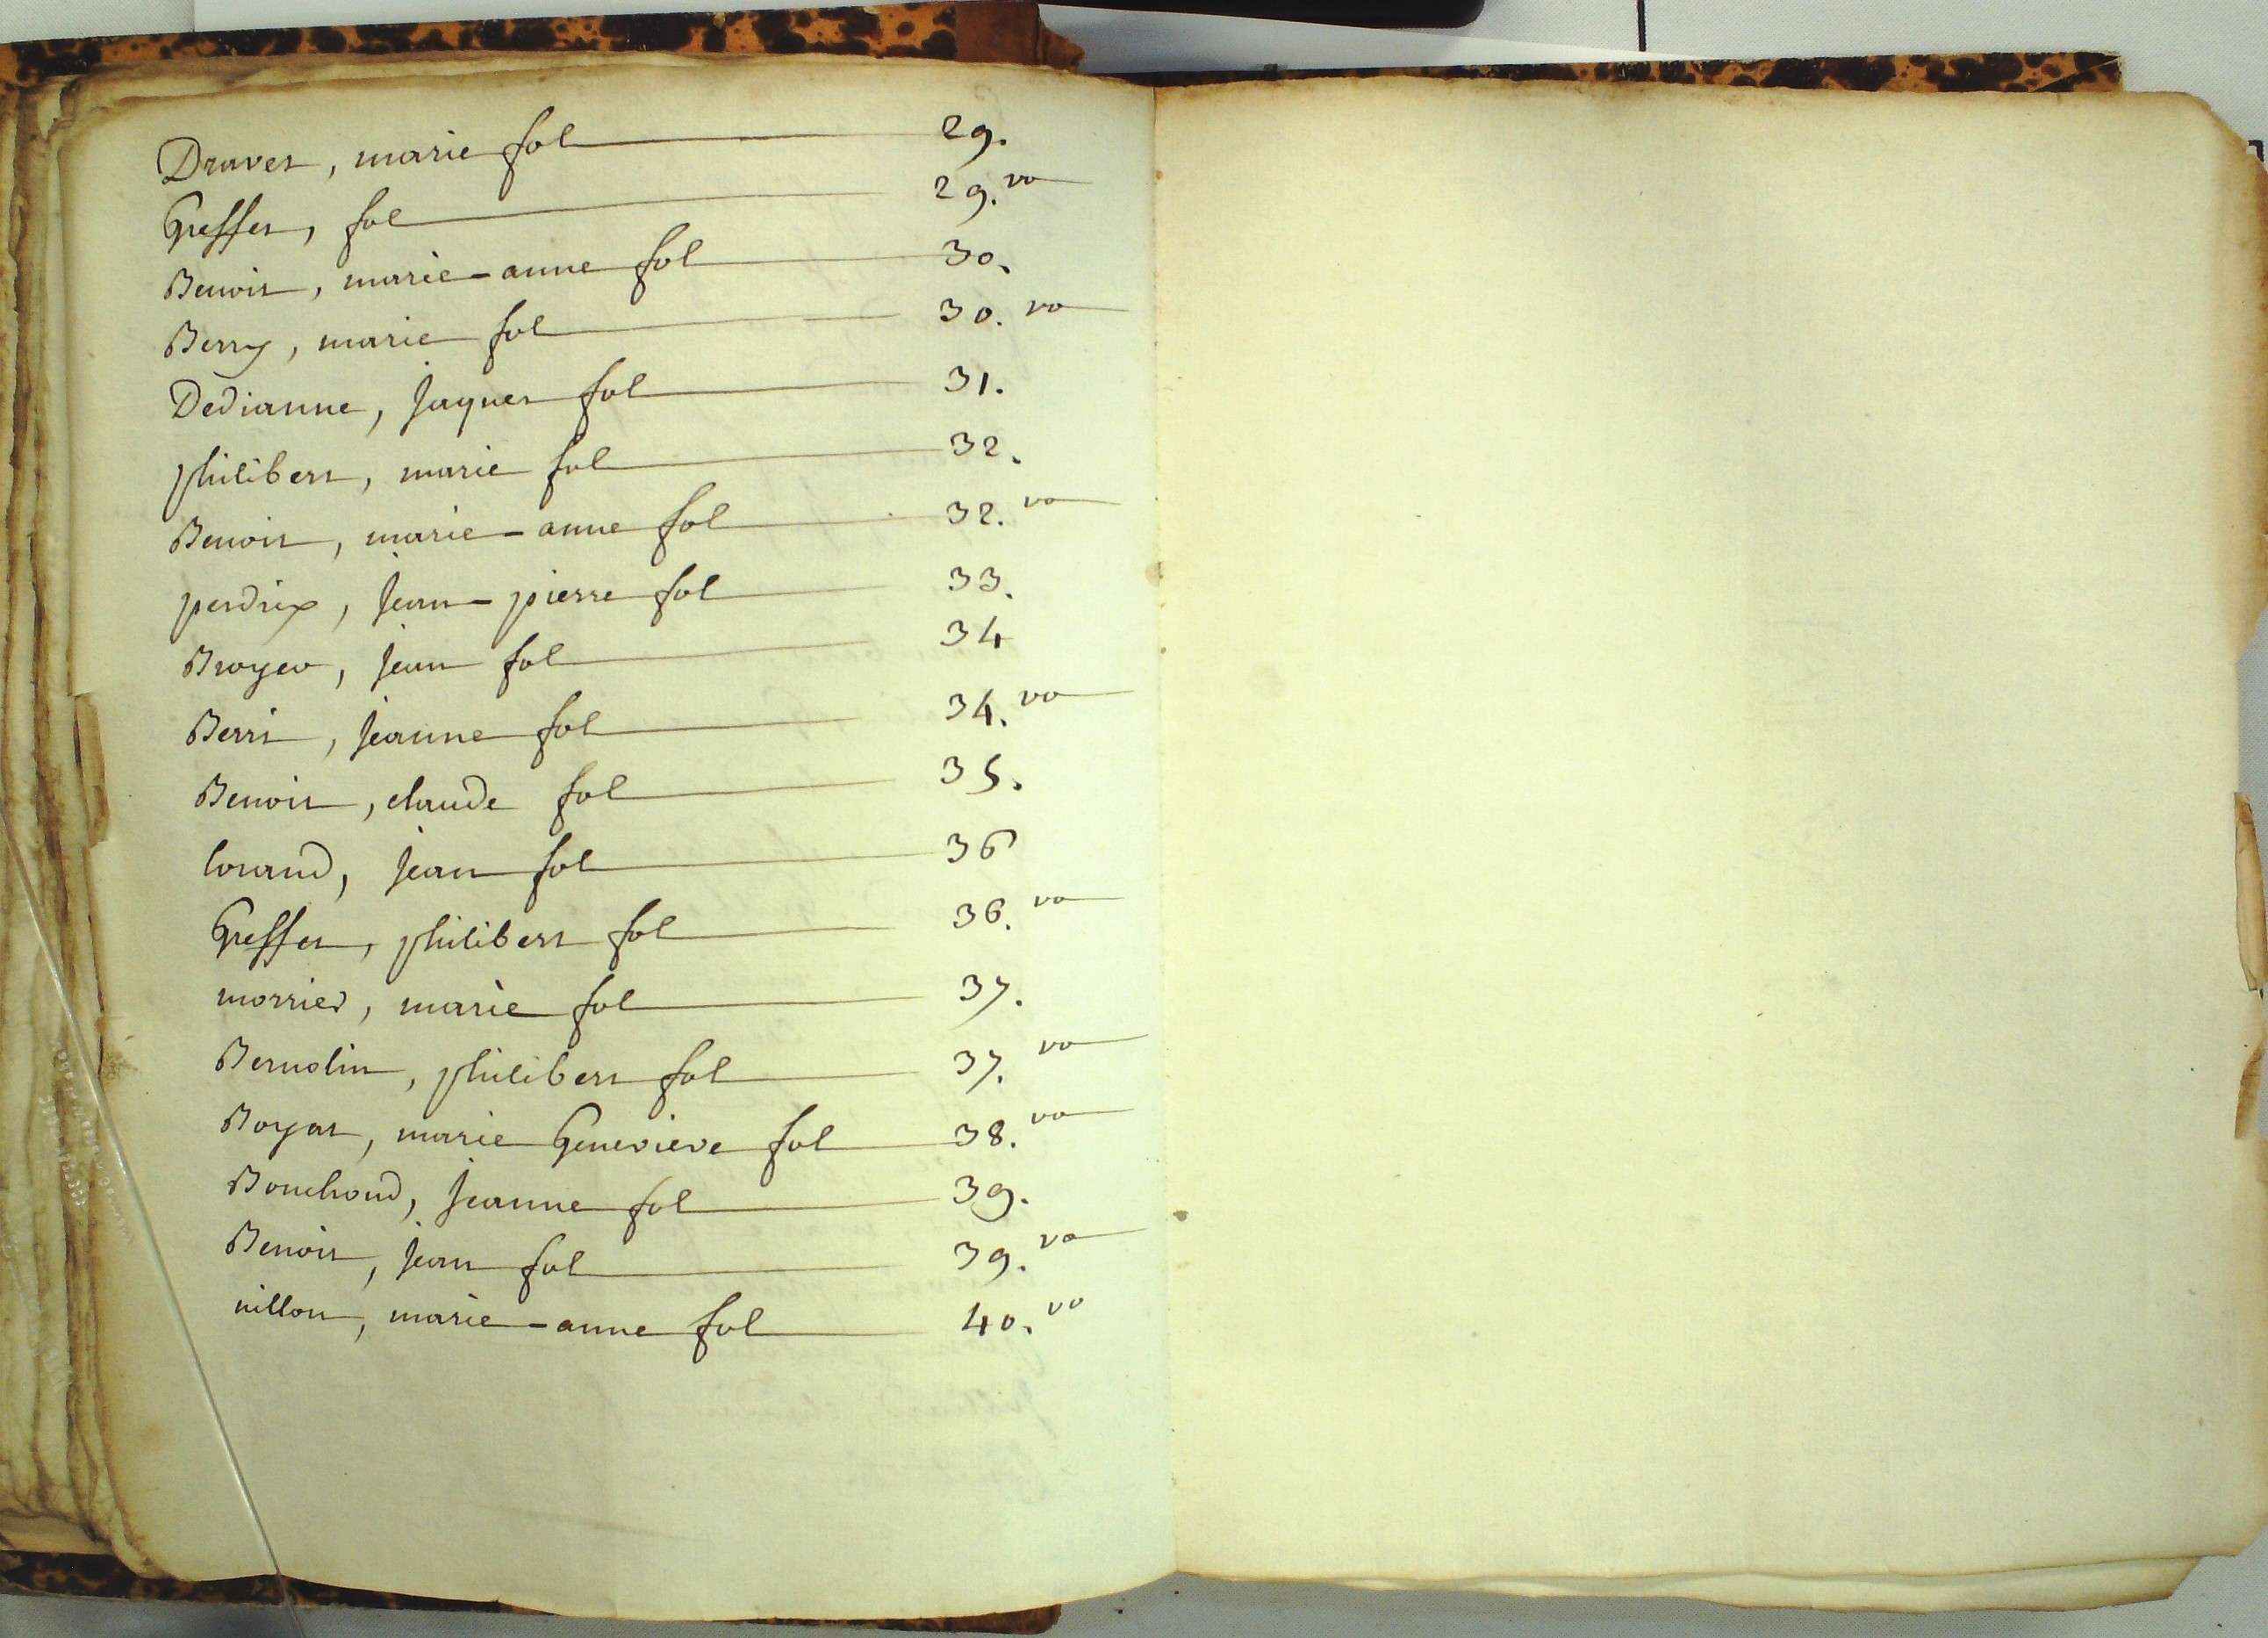 Dravet, marie fol 29.
Greffet, fol 29. vo
Benoit, marie-anne fol 30.
Berry, marie fol 30. vo
Dedianne, Jaques fol 31.
philibert, marie fol 32.
Benoit, marie-anne fol 32. vo
perdrix, Jean-pierre fol 33.
Broyer, Jean fol 34
Berri, Jeanne fol 34. vo
Benoit, claude fol 35.
lorand, Jean fol 36
Greffet, philibert fol 36. vo
morrier, marie fol 37.
Bernolin, philibert fol 37. vo
Boyat, marie Genevieve fol 38. vo
Bouchoud, Jeanne fol 39.
Benoit, Jean fol 39. vo
nillon, marie-anne fol 40. vo